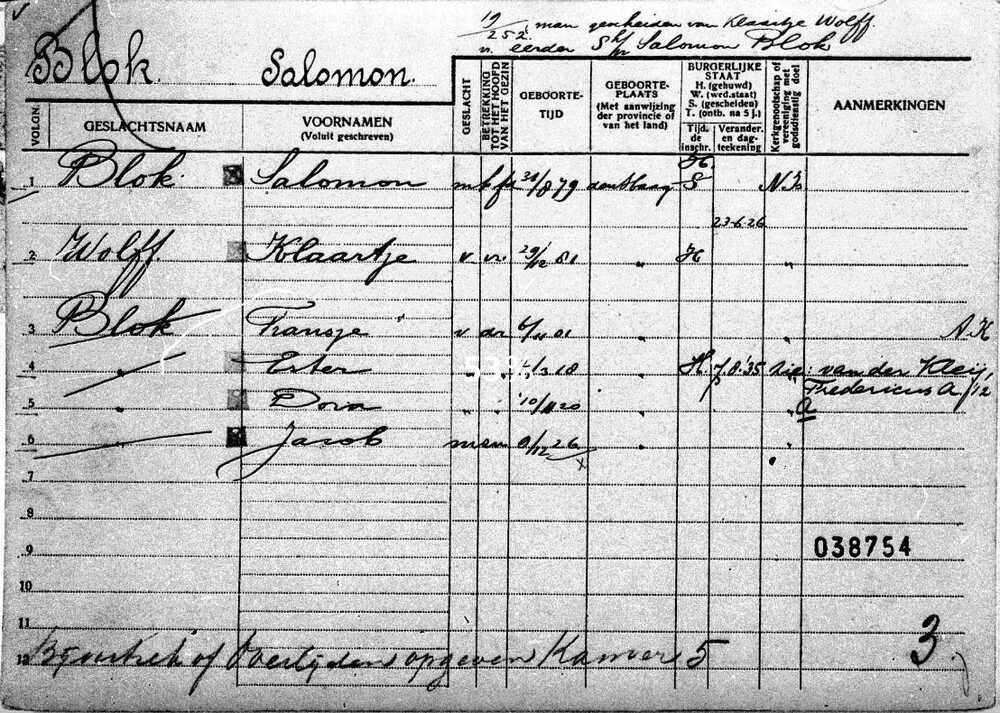 19/252 man gescheiden van Klaartje Wolff.
Blok. Salomon. eerder Salomon Blok
VOLGN. GESLACHTSNAAM VOORNAMEN (Voluit geschreven) GESLACHT BETREKKING TOT HET HOOFD VAN HET GEZIN GEBOORTE-TIJD GEBOORTE-PLAATS (Met aanwijzing der provincie of van het land) BURGERLIJKE STAAT H. (gehuwd) W. (wed.staat) S. (gescheiden) T. (ontb. na 5 j.) Tijd. de inschr. Verander. en dag-teekening Kerkgenootschap of vereeniging met godsdienstig doel AANMERKINGEN
H
1 Blok. Salomon m 8 79 den Haag S N.I.
23-6-26
2 Wolff. Klaartje v vr 29/12 81 " H "
3 Blok Fransje v dr 6/11 01 " " A K
4 " Ester " " 3 18 " H 7.8.'35 Zie: van der Kleij,
Fredericus A/12
5 " Dora " " 10/11 20 " " A
6 " Jacob m zn 9/12 26 " "
7
8
9 038754
10
11
12 Bij vertrek of Overlijden opgeven Kamer 5 3